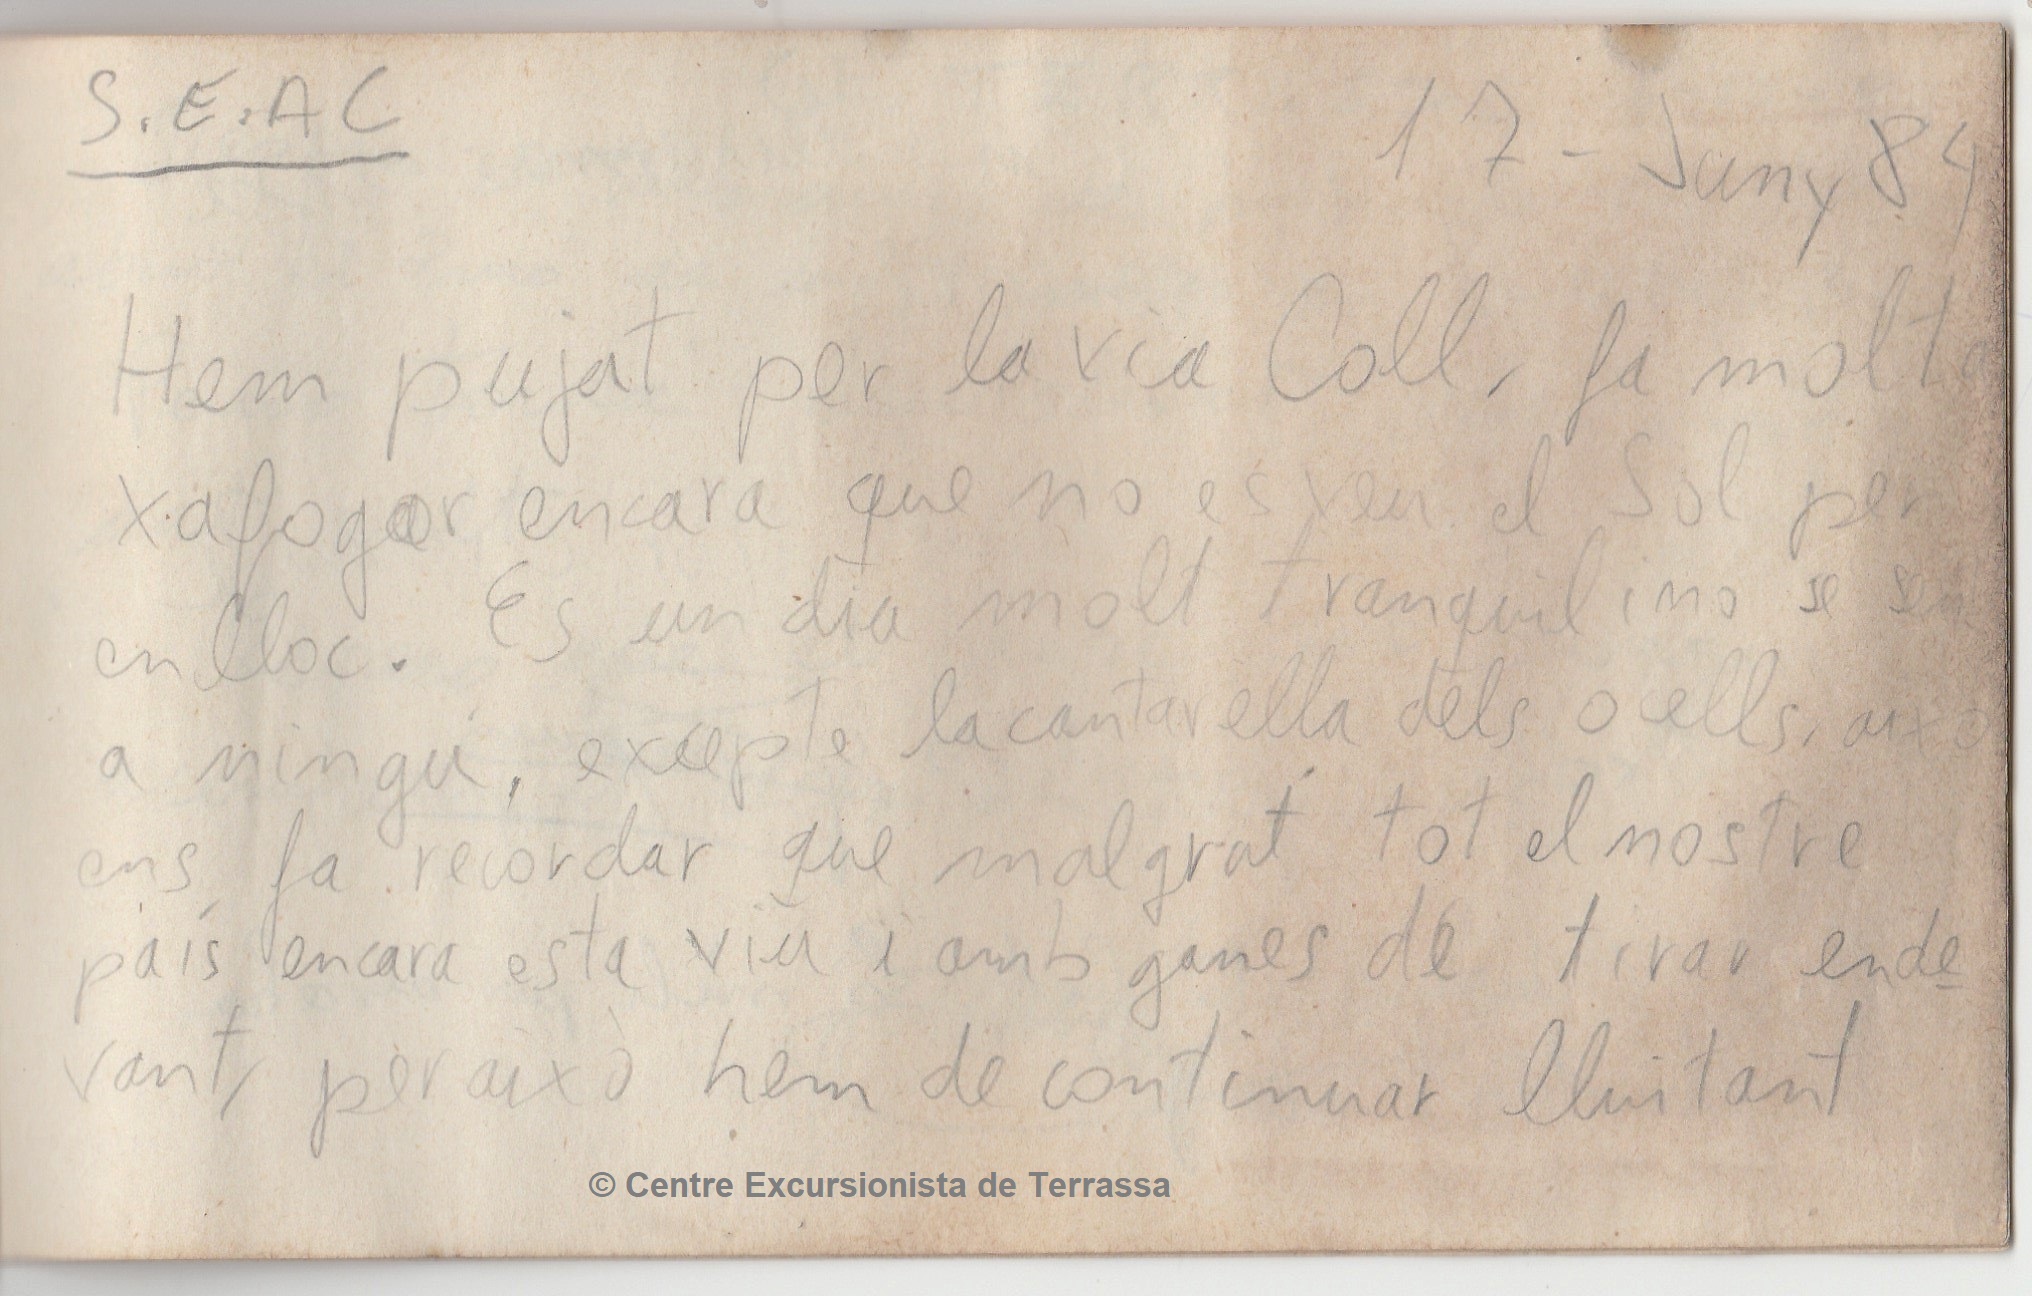 S.E.AC
17 - Juny 84
Hem pujat per la via Coll, fa molta
xafogor encara que no es veu el Sol per
enlloc. Es un dia molt tranquil i no se sen
a ningú, excepte la cantarella dels ocells, això
ens fa recordar que malgrat tot el nostre
país encara esta viu i amb ganes de tirar ende
vant, per això hem de continuar lluitant
© Centre Excursionista de Terrassa